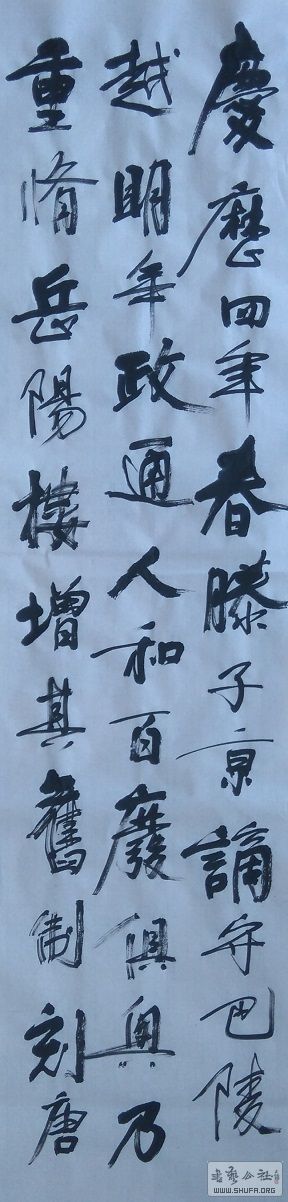 慶歷四年春滕子京謫守巴陵
越明年政通人和百廢俱興乃
重脩岳陽樓增其舊制刻唐
書藝公社
WWW.SHUFA.ORG